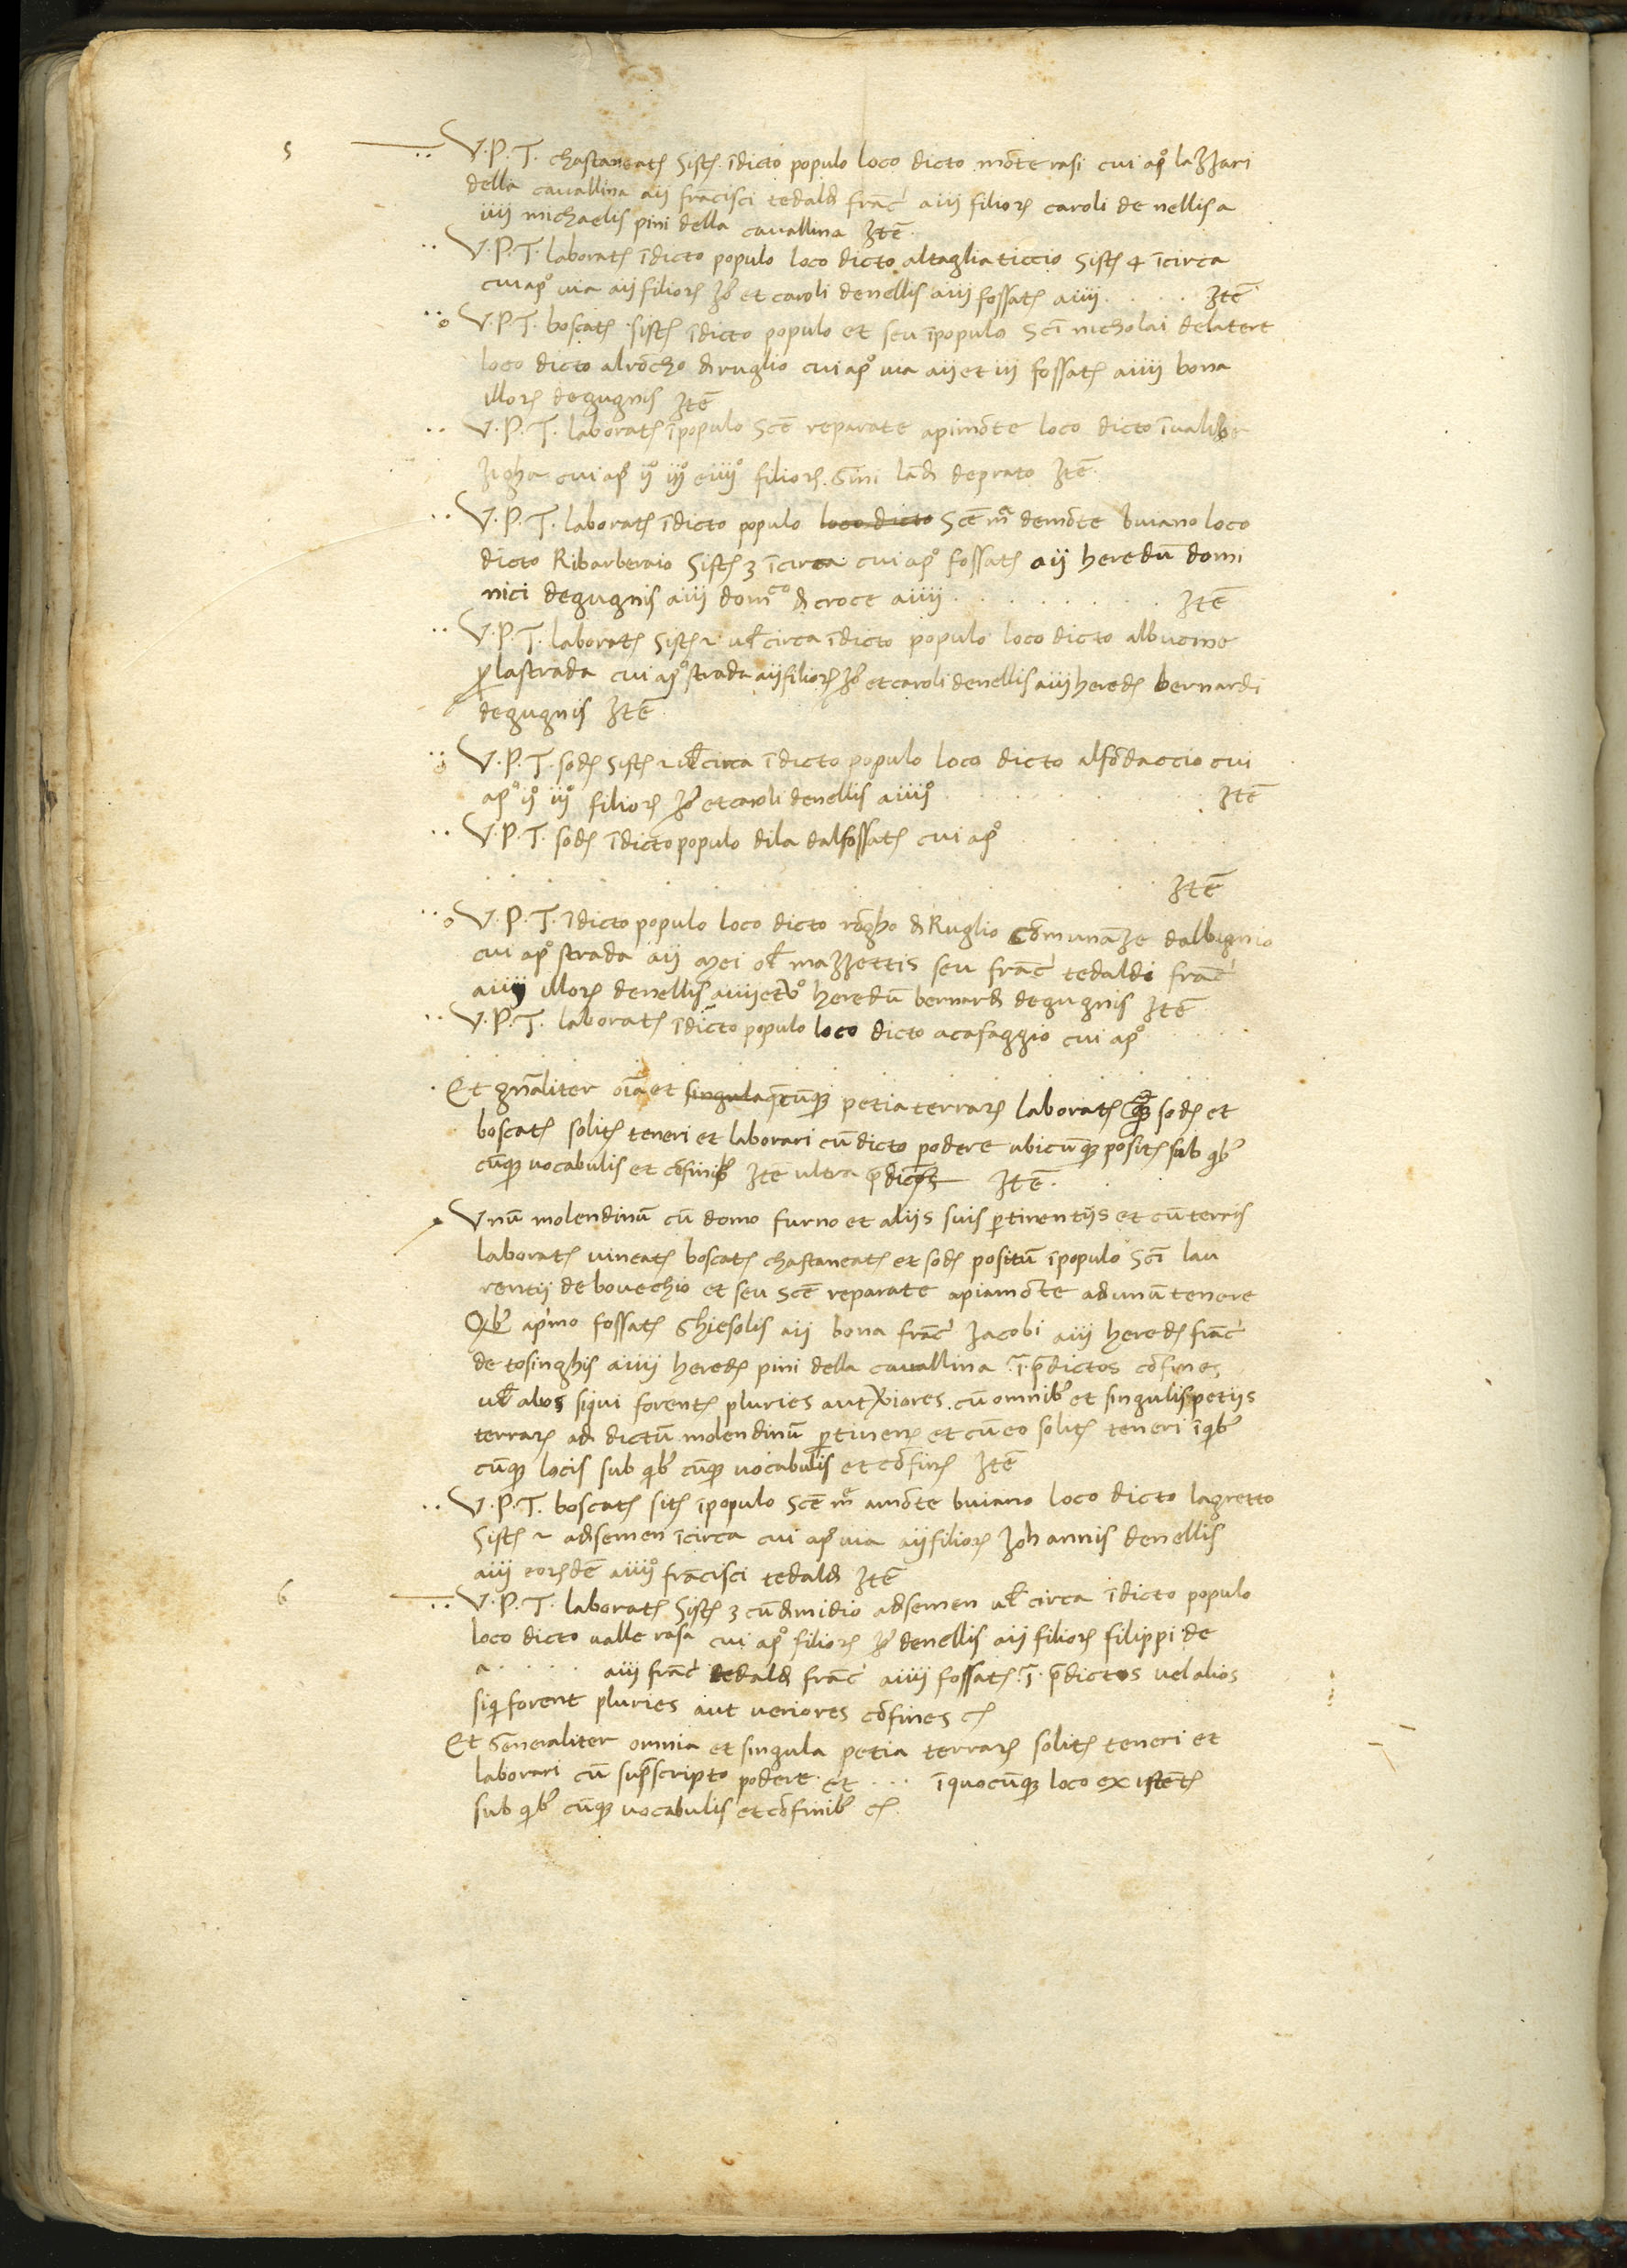 5
V. P. T. chastaneatę Sistę īdicto populo loco dicto mōte rasi cui ap̊ lazzari
della cavallina aij frācisci tedaldi franc̄ aiij filiorę caroli de nellis a
iiij michaelis pini della cavallina Itē
V. P. T. laboratę īdicto populo loco dicto altagliaticcio Sistę 4 īcirca
cui ap̊ via aij filiorę Jo et caroli denellis aiij fossatę aiiij . . . . Itē
V. P. T. boscatę sistę īdicto populo et seu īpopulo Scī nicholai delatere
loco dicto alrōcho diruglio cui ap̊ via aij et iij fossatę aiiij bona
illorę degugnis Itē
V. P. T. laboratę īpopulo Scē reparate apimōte loco dicto īvalibe
zigha cui ap̊ ij̊ iij̊ eiiij̊ filiorę Gini landi deprato Itē
V. P. T. laboratę īdicto populo loco dicto Scē mᵃ demōte buiano loco
dicto Ribarberaio Sistę 3 īcirca cui ap̊ fossatę aij heredū domi
nici degugnis aiij domᶜᵒ di croce aiiij . . . . . . . Itē
V. P. T. laboratę Sistę 2 vł circa īdicto populo loco dicto albucine
p lastrada cui ap̊ strada aij filiorę Jo et caroli denellis aiij heredę bernardi
degugnis Itē
V. P. T. sodę Sistę 2 vł circa īdicto populo loco dicto alfōdaccio cui
ap̊ ij̊ iij̊ filiorę Jo et caroli denellis aiiij̊ . . . . . . Itē
V. P. T. sodę īdicto populo dila dalfossatę cui ap̊ . . . .
. . . . . . . . Itē
V. P. T. īdicto populo loco dicto rōgho di Ruglio Comunāze dalbignio
cui ap̊ strada aij mei oł mazzettis seu franc̄ tedaldi franc̄
aiiij illorę denellis aiiij et v̊ heredū bernardi degugnis Itē
V. P. T. laboratę īdicto populo loco dicto acafaggio cui ap̊ . .
Et gn̄aliter oīa et singula q̄cūqꝫ petia terrarę laboratę sodę et
boscatę solitę teneri et laborari cū dicto podere ubicūqꝫ positę sub qib
cūqꝫ vocabulis et cōfinib Itē ultra p̄dictę Itē
Unū molendinū cū domo furno et aliis suis ptinentijs et cū terris
laboratę vineatę boscatę chastaneatę et sodę positū īpopulo Scī lau
rentij de bovechio et seu Scē reparate apiamōte adunū tenere
Qib ap̄mo fossatę Ghiesolis aij bona franc̄ Jacobi aiij heredę franc̄
de tosinghis aiiij heredę pini della cavallina ī p̄dictos cōfines
vł alios siqui forentę pluries aut viores cū omnib et singulis petijs
terrarę ad dictū molendinū ptinenę et cū eo solitę teneri īqib
cūqꝫ locis sub qib cūqꝫ vocabulis et cōfinę Itē
V. P. T. boscatę sitę īpopulo Scē mᵉ amōte buiano loco dicto lagretto
Sistę 2 adsemen īcirca cui ap̊ via aij filiorę Johannis denellis
aiij eorędē aiiij̊ frācisci tedaldi Itē
6
V. P. T. laboratę Sistę 3 cū dimidio adsemen vł circa īdicto populo
loco dicto valle rasa cui ap̊ filiorę Jo denellis aij filiorę filippi de
a . . . . . aiij franc̄ tedaldi franc̄ aiiij fossatę ī p̄dictos vel alios
siqi forent pluries aut veriores cōfines cę
Et Generaliter omnia et singula petia terrarę solitę teneri et
laborari cū sup̄scripto podere et . . . īquocūqꝫ loco existētę
sub qib cūqꝫ vocabulis et cōfinib cę